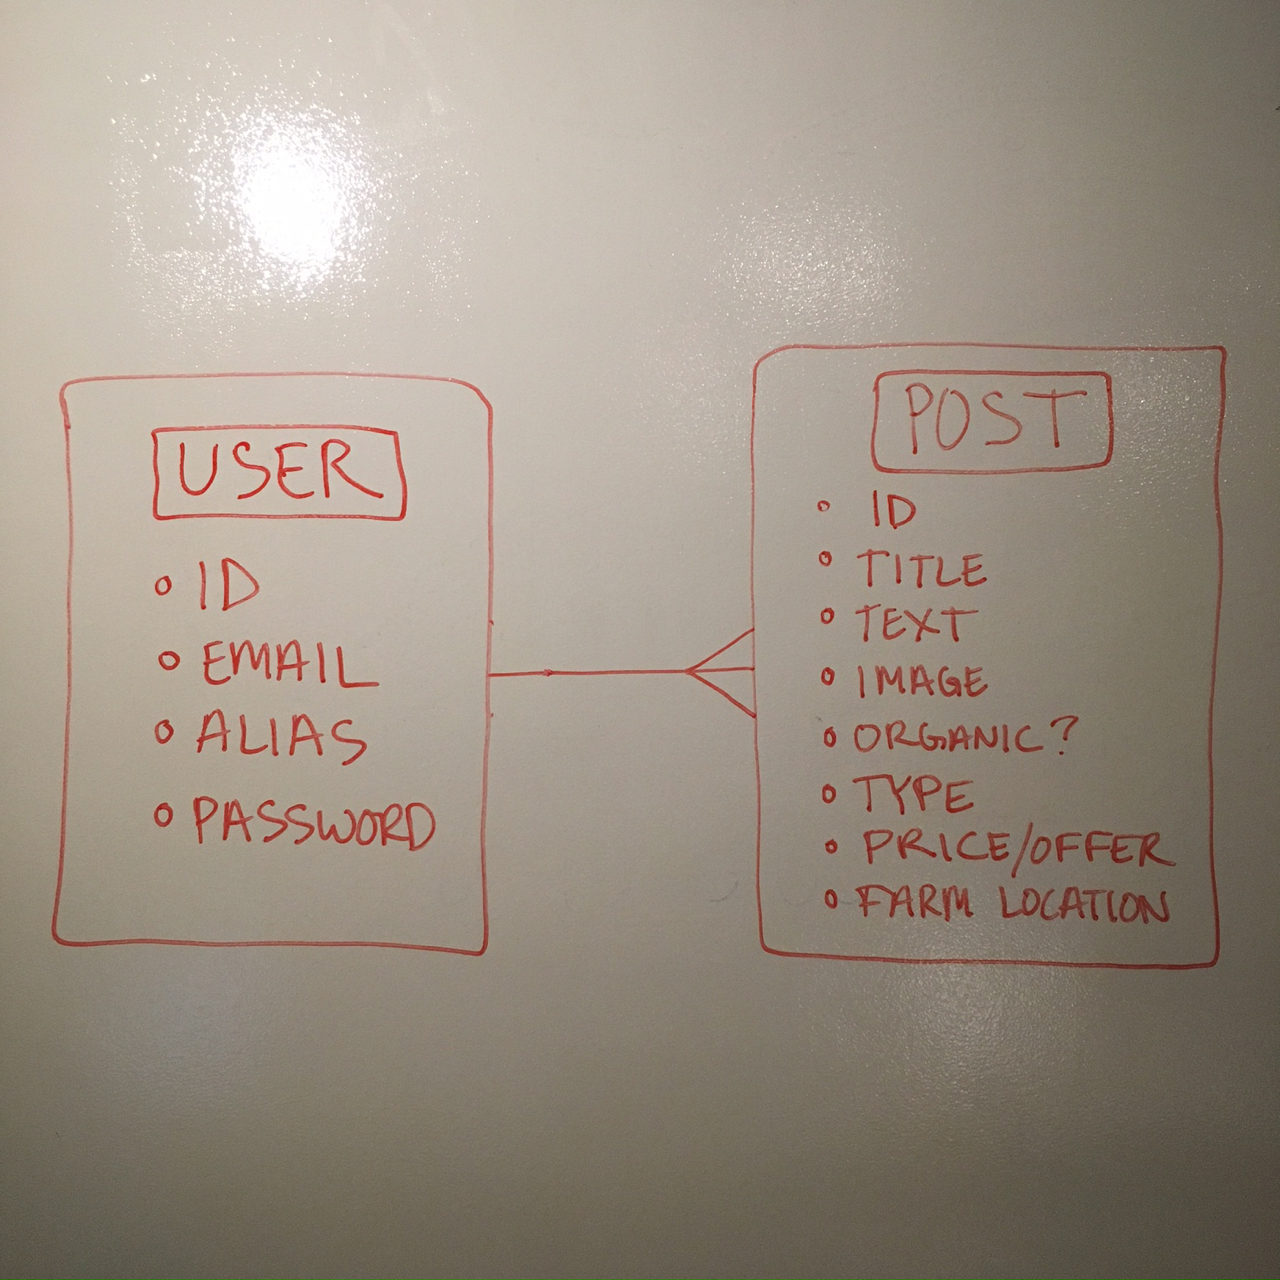 USER
• ID
• EMAIL
• ALIAS
• PASSWORD
POST
• ID
• TITLE
• TEXT
• IMAGE
• ORGANIC?
• TYPE
• PRICE/OFFER
• FARM LOCATION